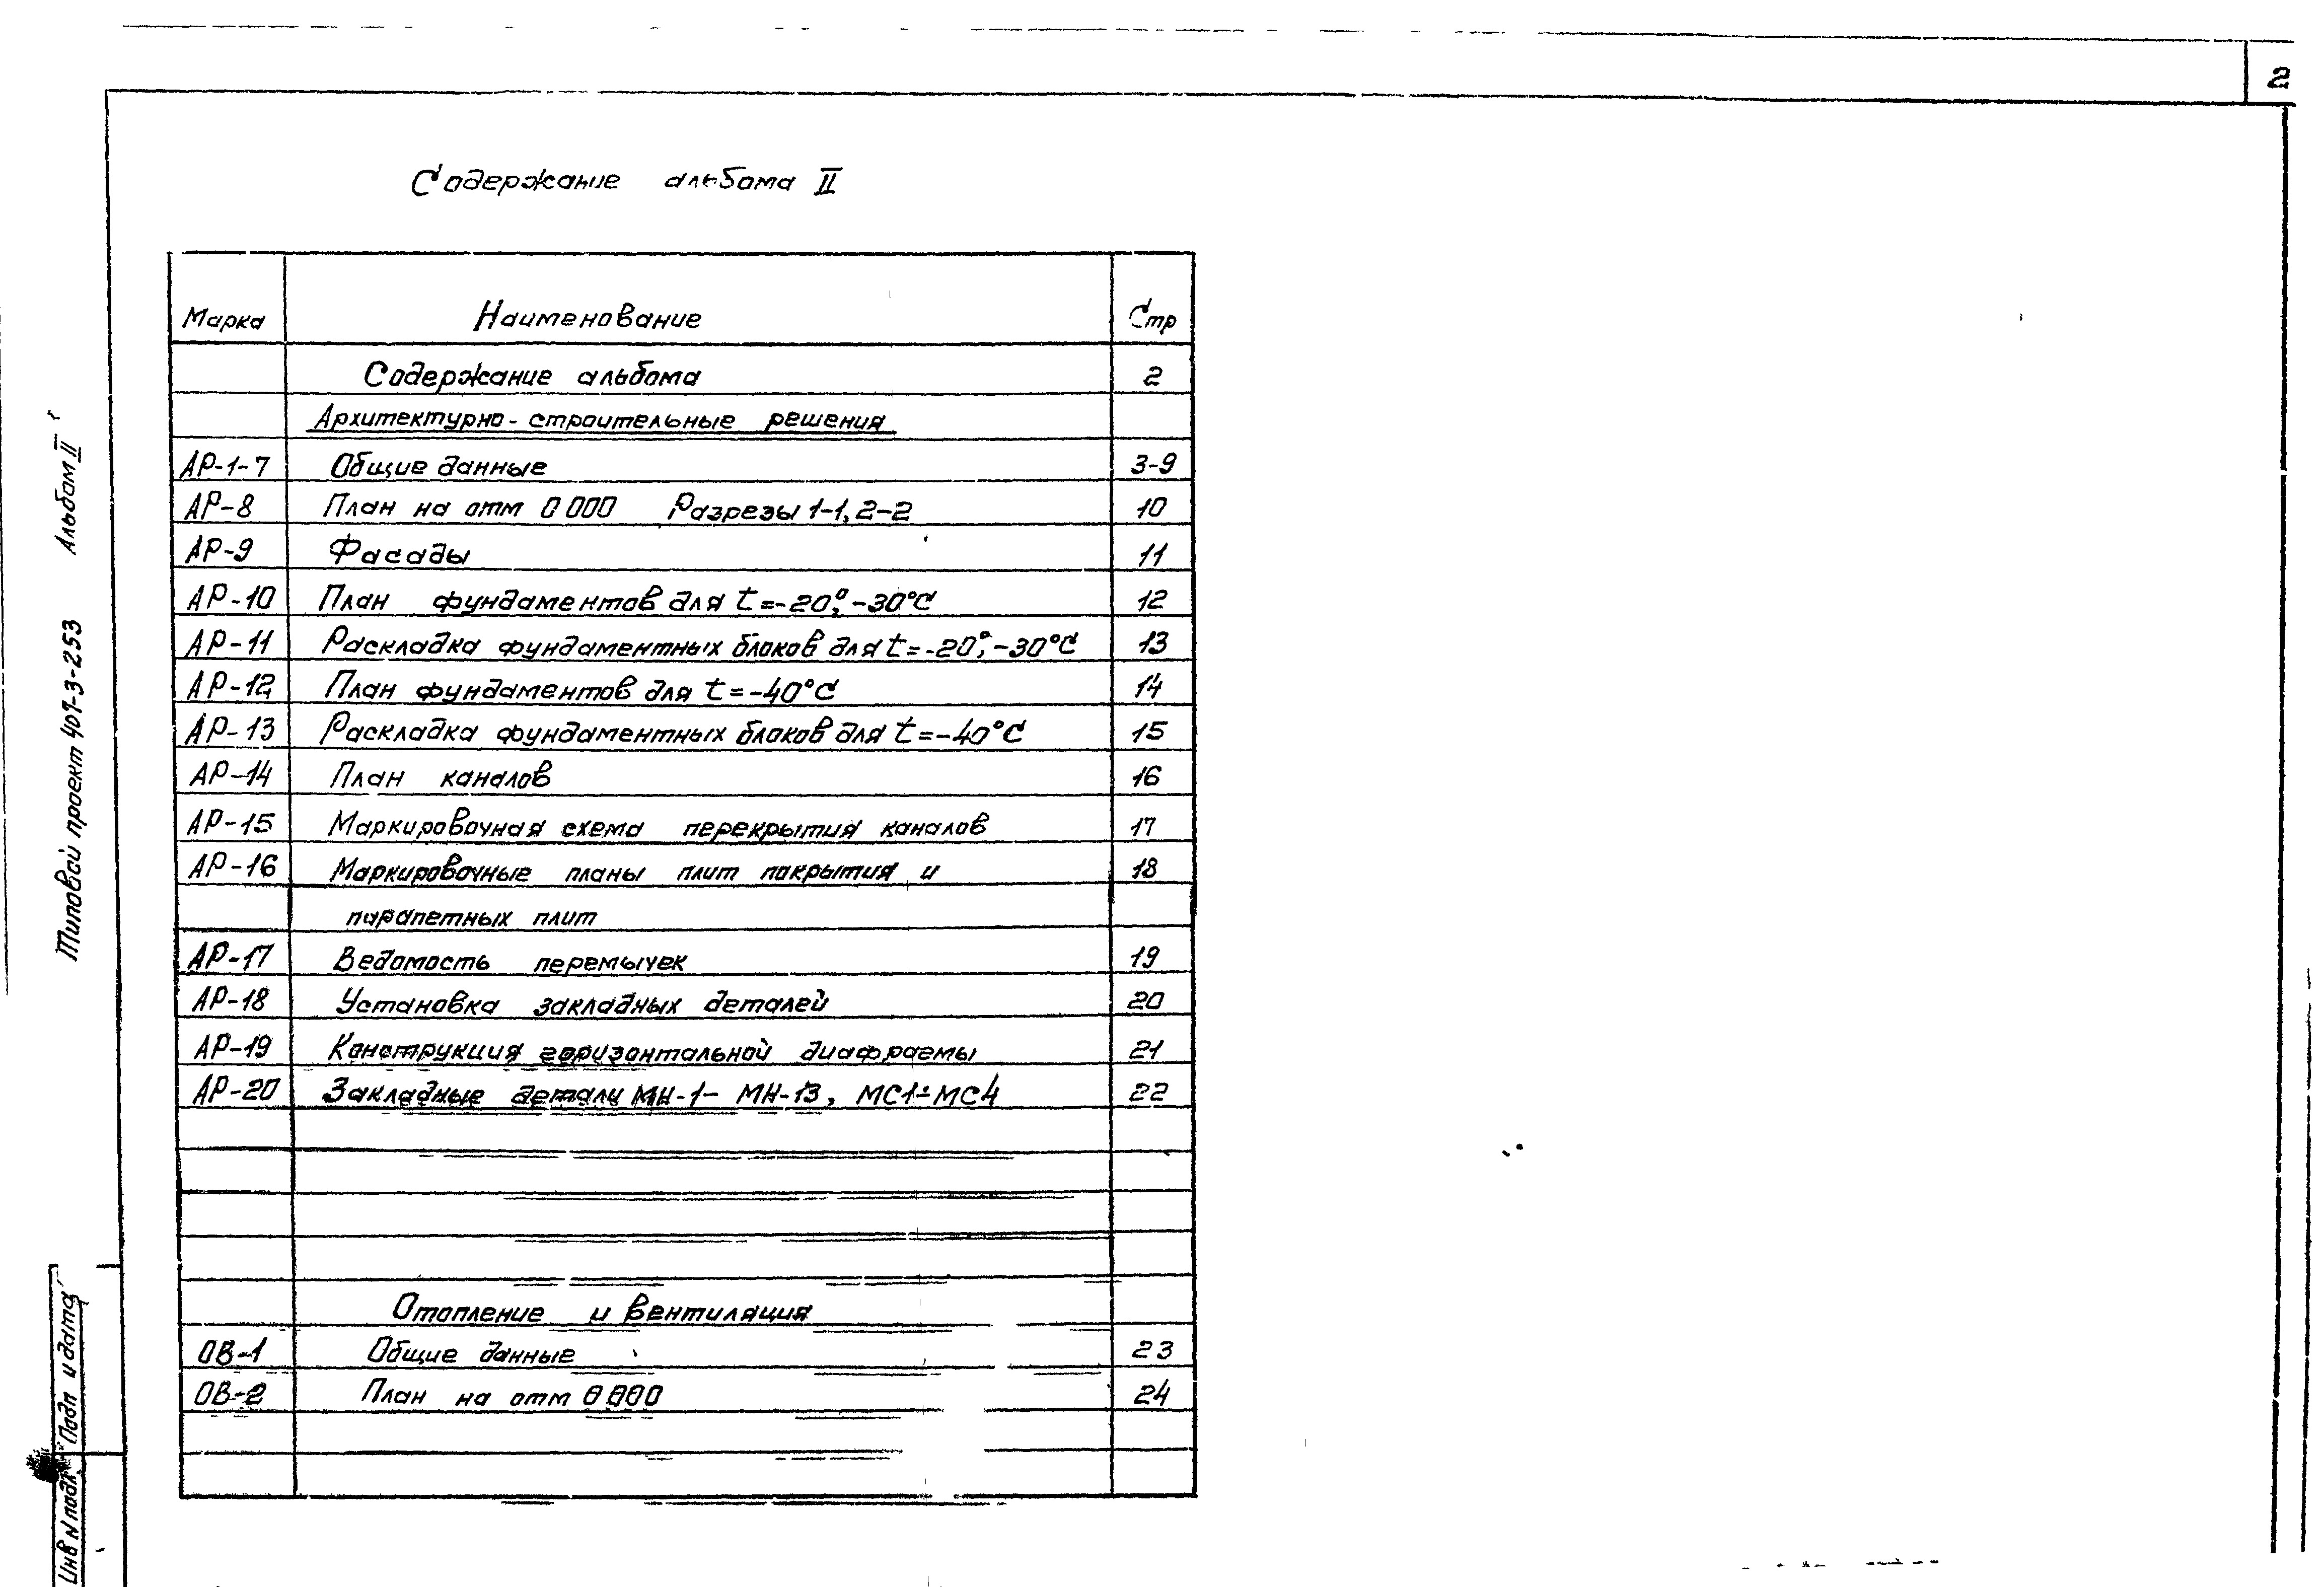 2
Содержание альбома II
Марка Наименование Стр
Содержание альбома 2
Архитектурно-строительные решения
АР-1-7 Общие данные 3-9
АР-8 План на отм 0 000 Разрезы 1-1, 2-2 10
АР-9 Фасады 11
АР-10 План фундаментов для t=-20°, -30°С 12
АР-11 Раскладка фундаментных блоков для t=-20°, -30°С 13
АР-12 План фундаментов для t=-40°С 14
АР-13 Раскладка фундаментных блоков для t=-40°С 15
АР-14 План каналов 16
АР-15 Маркировочная схема перекрытия каналов 17
АР-16 Маркировочные планы плит покрытия и 18
парапетных плит
АР-17 Ведомость перемычек 19
АР-18 Установка закладных деталей 20
АР-19 Конструкция горизонтальной диафрагмы 21
АР-20 Закладные детали МН-1- МН-13, МС1÷МС4 22
Отопление и вентиляция
ОВ-1 Общие данные 23
ОВ-2 План на отм 0 000 24
Типовой проект 407-3-253 Альбом II
Инв N подл. Подп и дата